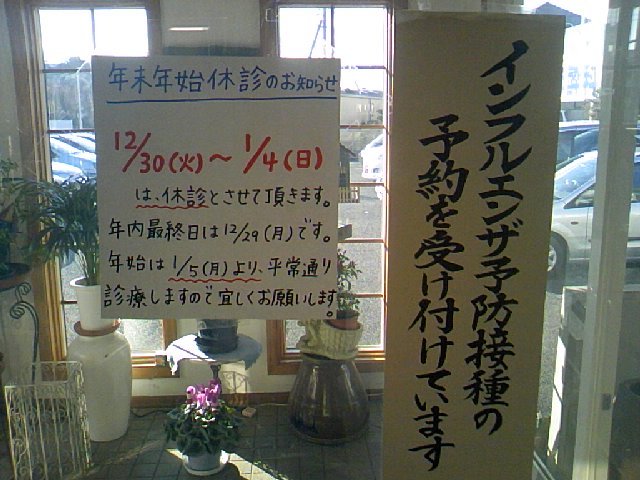 年末年始休診のお知らせ
12/30(火)～1/4(日)
は、休診とさせて頂きます。
年内最終日は12/29(月)です。
年始は1/5(月)より、平常通り
診療しますので宜しくお願いします。
インフルエンザ予防接種の
予約を受け付けています